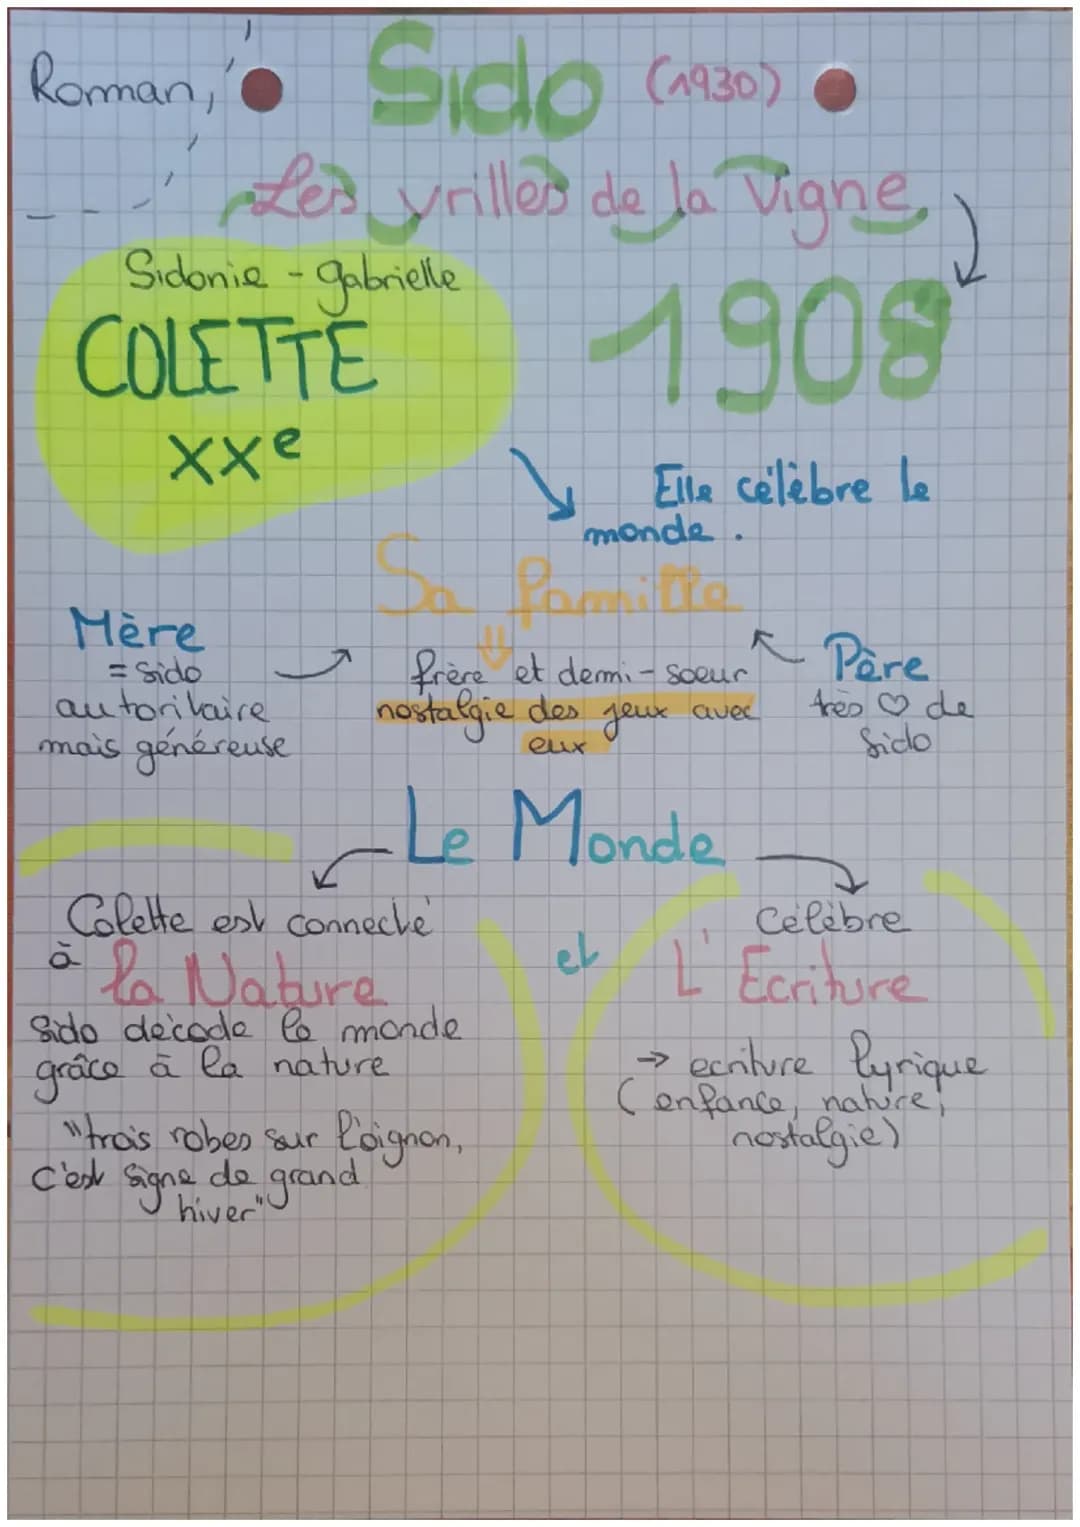 Roman, Sido (1930)
Les vrilles de la Vigne
1908
Sidonie - gabrielle
COLETTE
XXe
Elle célèbre le
monde.
Sa famille
Mère
= Sido
autoritaire
mais généreuse
frère et demi-soeur
nostalgie des jeux avec
eux
Père
très ♡ de
Sido
Le Monde
Colette est connecté
à la Nature
Sido décode le monde
grâce à la nature
"trois robes sur l'oignon,
c'est signe de grand
hiver"
et
Célèbre
L'Ecriture
→ ecriture lyrique
(enfance, nature,
nostalgie)